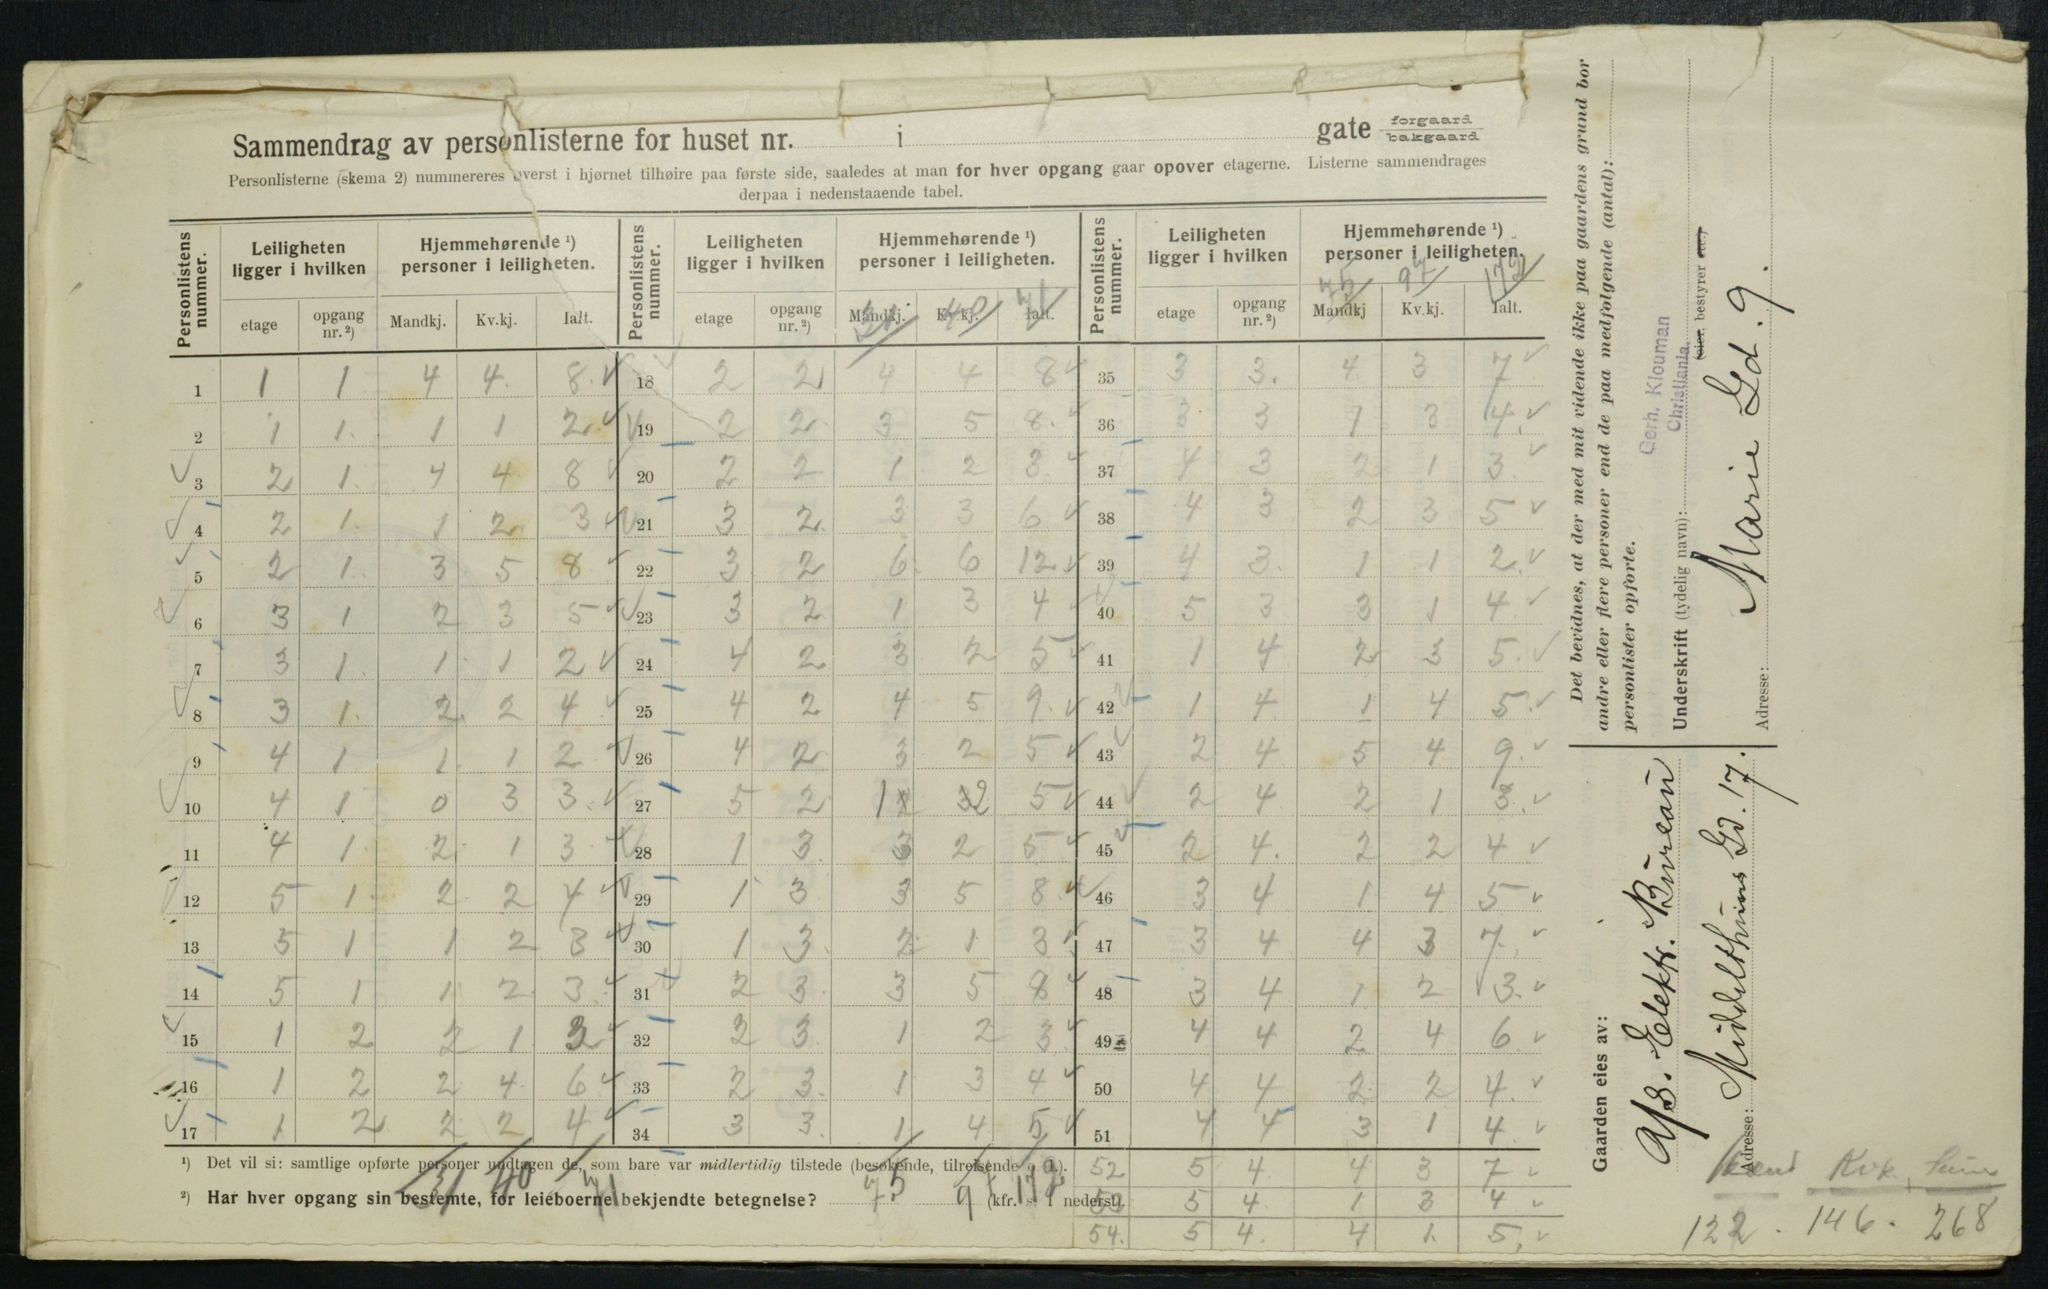 Sammendrag av personlisterne for huset nr. i gate forgaard bakgaard
Personlisterne (skema 2) nummereres øverst i hjørnet tilhøire paa første side, saaledes at man for hver opgang gaar opover etagerne. Listerne sammendrages
derpaa i nedenstaaende tabel.
Personlistens nummer. Leiligheten ligger i hvilken Hjemmehørende ¹) personer i leiligheten. Personlistens nummer. Leiligheten ligger i hvilken Hjemmehørende ¹) personer i leiligheten. Personlistens nummer. Leiligheten ligger i hvilken Hjemmehørende ¹) personer i leiligheten.
31 40 71 75 97
etage opgang nr. ²) Mandkj. Kv.kj. Ialt. etage opgang nr. ²) Mandkj. Kv.kj. Ialt. etage opgang nr. ²) Mandkj Kv.kj. Ialt.
1 1 1 4 4 8 18 2 2 4 4 8 35 3 3 4 3 7
2 1 1 1 1 2 19 2 2 3 5 8 36 3 3 1 3 4
3 2 1 4 4 8 20 2 2 1 2 3 37 4 3 2 1 3
4 2 1 1 2 3 21 3 2 3 3 6 38 4 3 2 3 5
5 2 1 3 5 8 22 3 2 6 6 12 39 4 3 1 1 2
6 3 1 2 3 5 23 3 2 1 3 4 40 5 3 3 1 4
7 3 1 1 1 2 24 4 2 3 2 5 41 1 4 2 3 5
8 3 1 2 2 4 25 4 2 4 5 9 42 1 4 1 4 5
9 4 1 1 1 2 26 4 2 3 2 5 43 2 4 5 4 9
10 4 1 0 3 3 27 5 2 5 44 2 4 2 1 3
11 4 1 2 1 3 28 1 3 3 2 5 45 2 4 2 2 4
12 5 1 2 2 4 29 1 3 3 5 8 46 3 4 1 4 5
13 5 1 1 2 3 30 1 3 2 1 3 47 3 4 4 3 7
14 5 1 1 2 3 31 2 3 3 5 8 48 3 4 1 2 3
15 1 2 2 1 3 32 2 3 1 2 3 49 4 4 2 4 6
16 1 2 2 4 6 33 2 3 1 3 4 50 4 4 2 2 4
17 1 2 2 2 4 34 3 3 1 4 5 51 4 4 3 1 4
¹) Det vil si: samtlige opførte personer undtagen de, som bare var midlertidig tilstede (besøkende, tilreisende o. a.). 52 5 4 4 3 7
²) Har hver opgang sin bestemte, for leieboerne bekjendte betegnelse? (kfr. s. 1 nederst). 53 5 4 1 3 4
31 40 71 75 97
54. 5 4. 4 1 5
Det bevidnes, at der med mit vidende ikke paa gaardens grund bor
andre eller flere personer end de paa medfølgende (antal):
personlister opførte.
Gerh. Klouman
Christiania.
Underskrift (tydelig navn): (eier, bestyrer etc.)
Adresse: Marie Gd. 9.
Gaarden eies av: A/S. Elektr. Bureau
Adresse: Middelthuns Gd. 17.
Mend Kvk. Sum
122 . 146 . 268